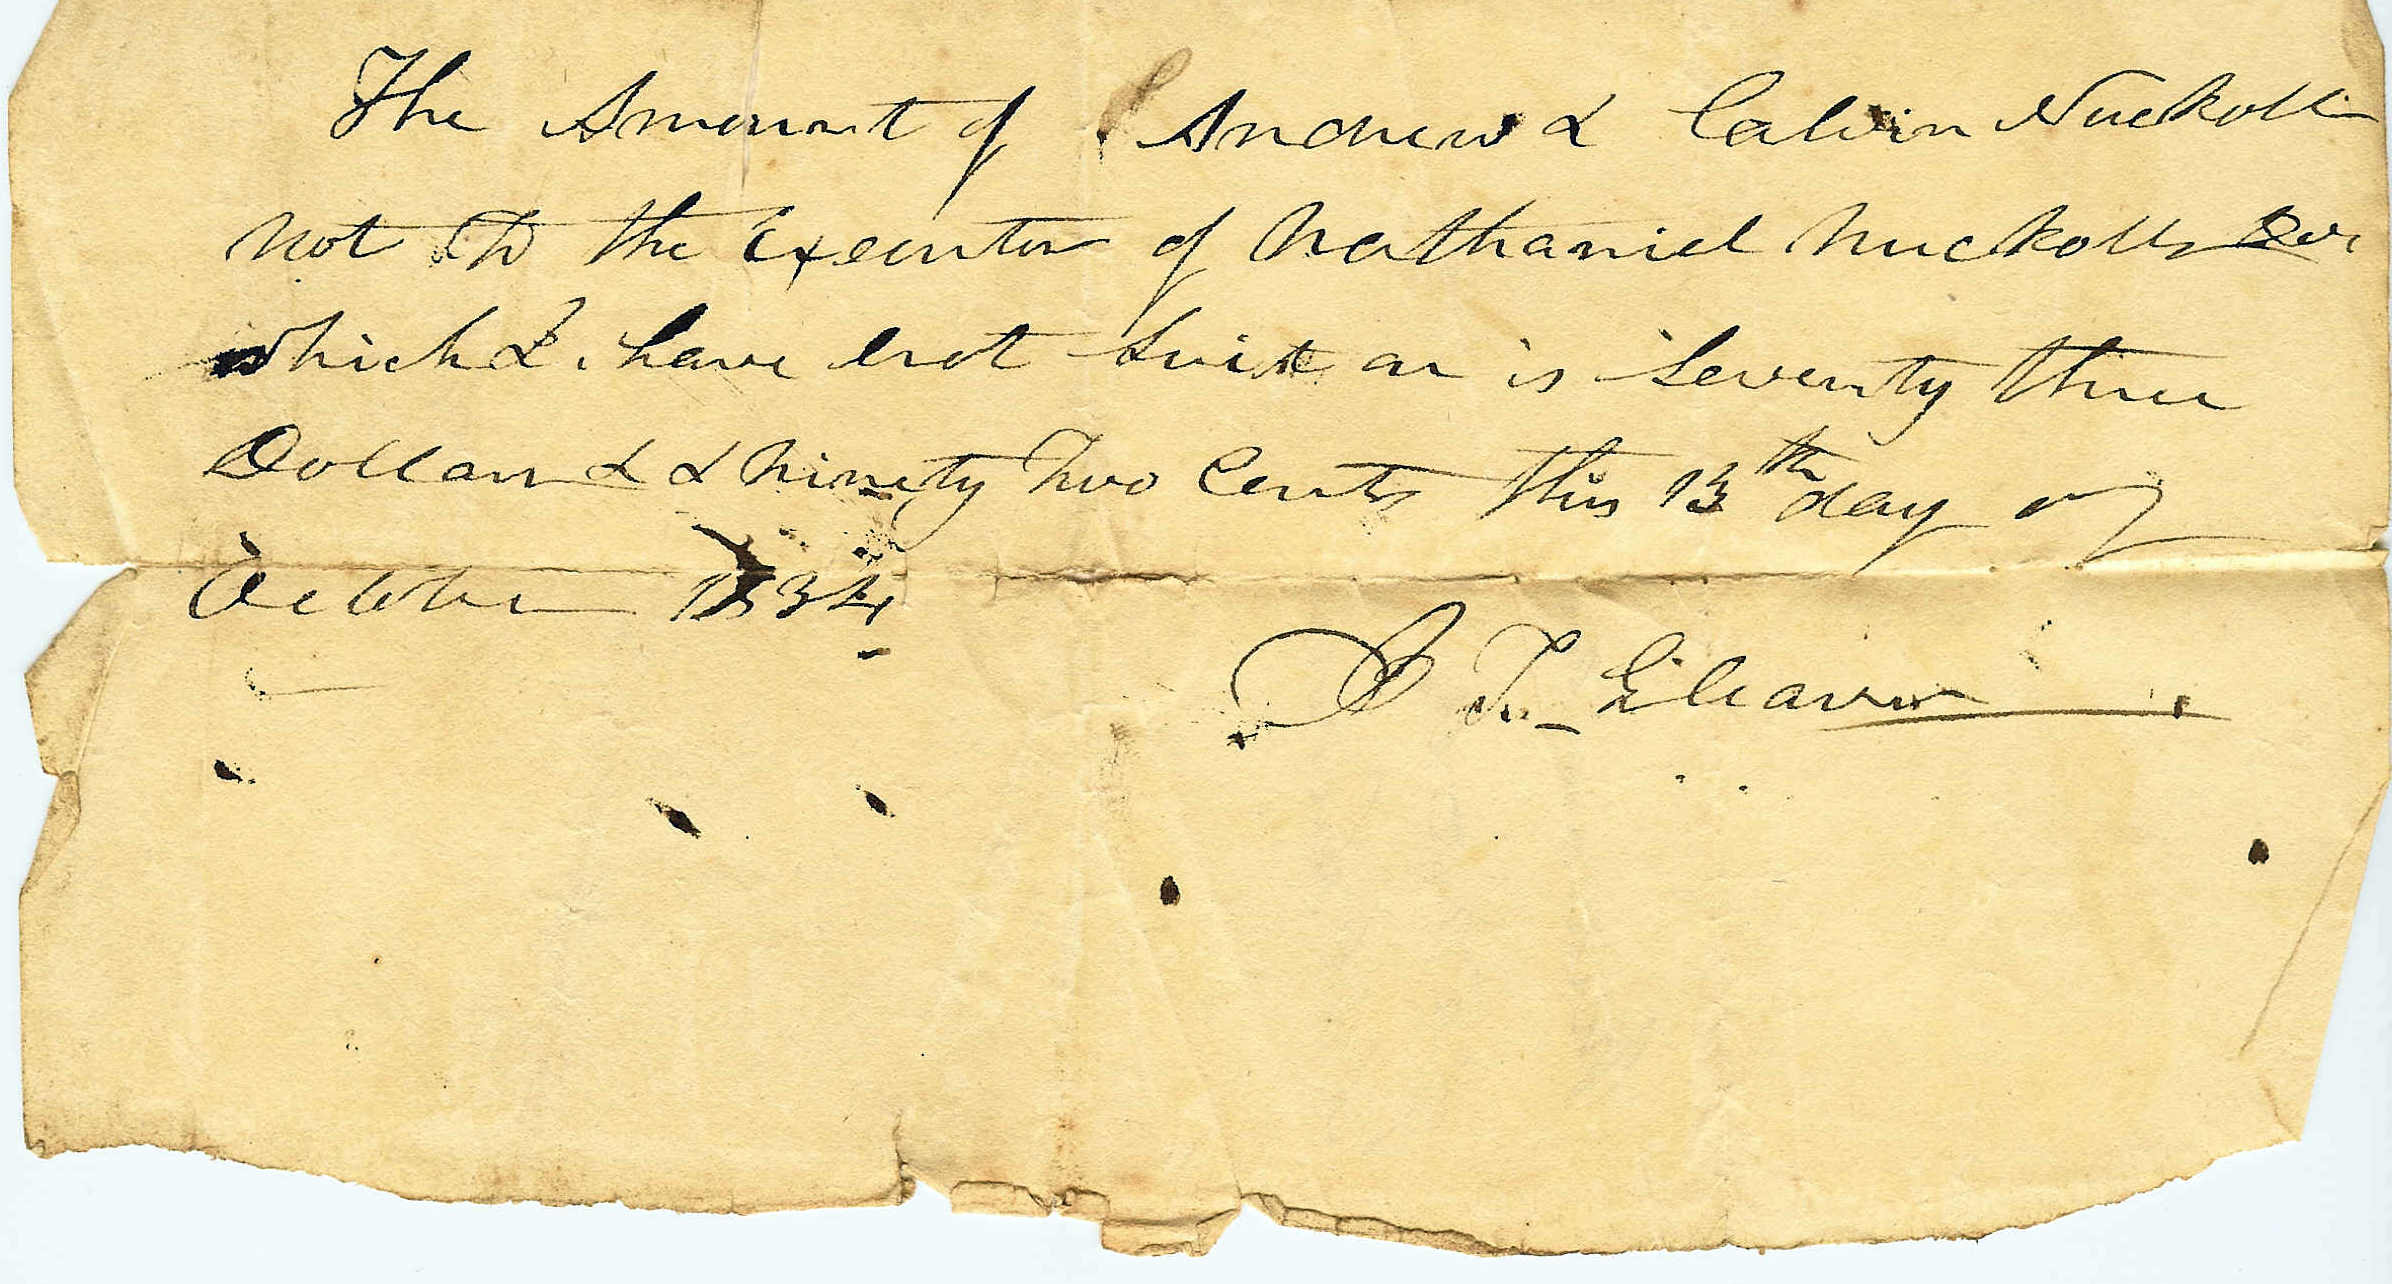 The Amount of Andrew & Calvin Nuckolls
not to the Executor of Nathaniel Nuckolls
which I have not suit on is seventy three
Dollars & & ninety Two Cents this 13th day of
October 1834
T.